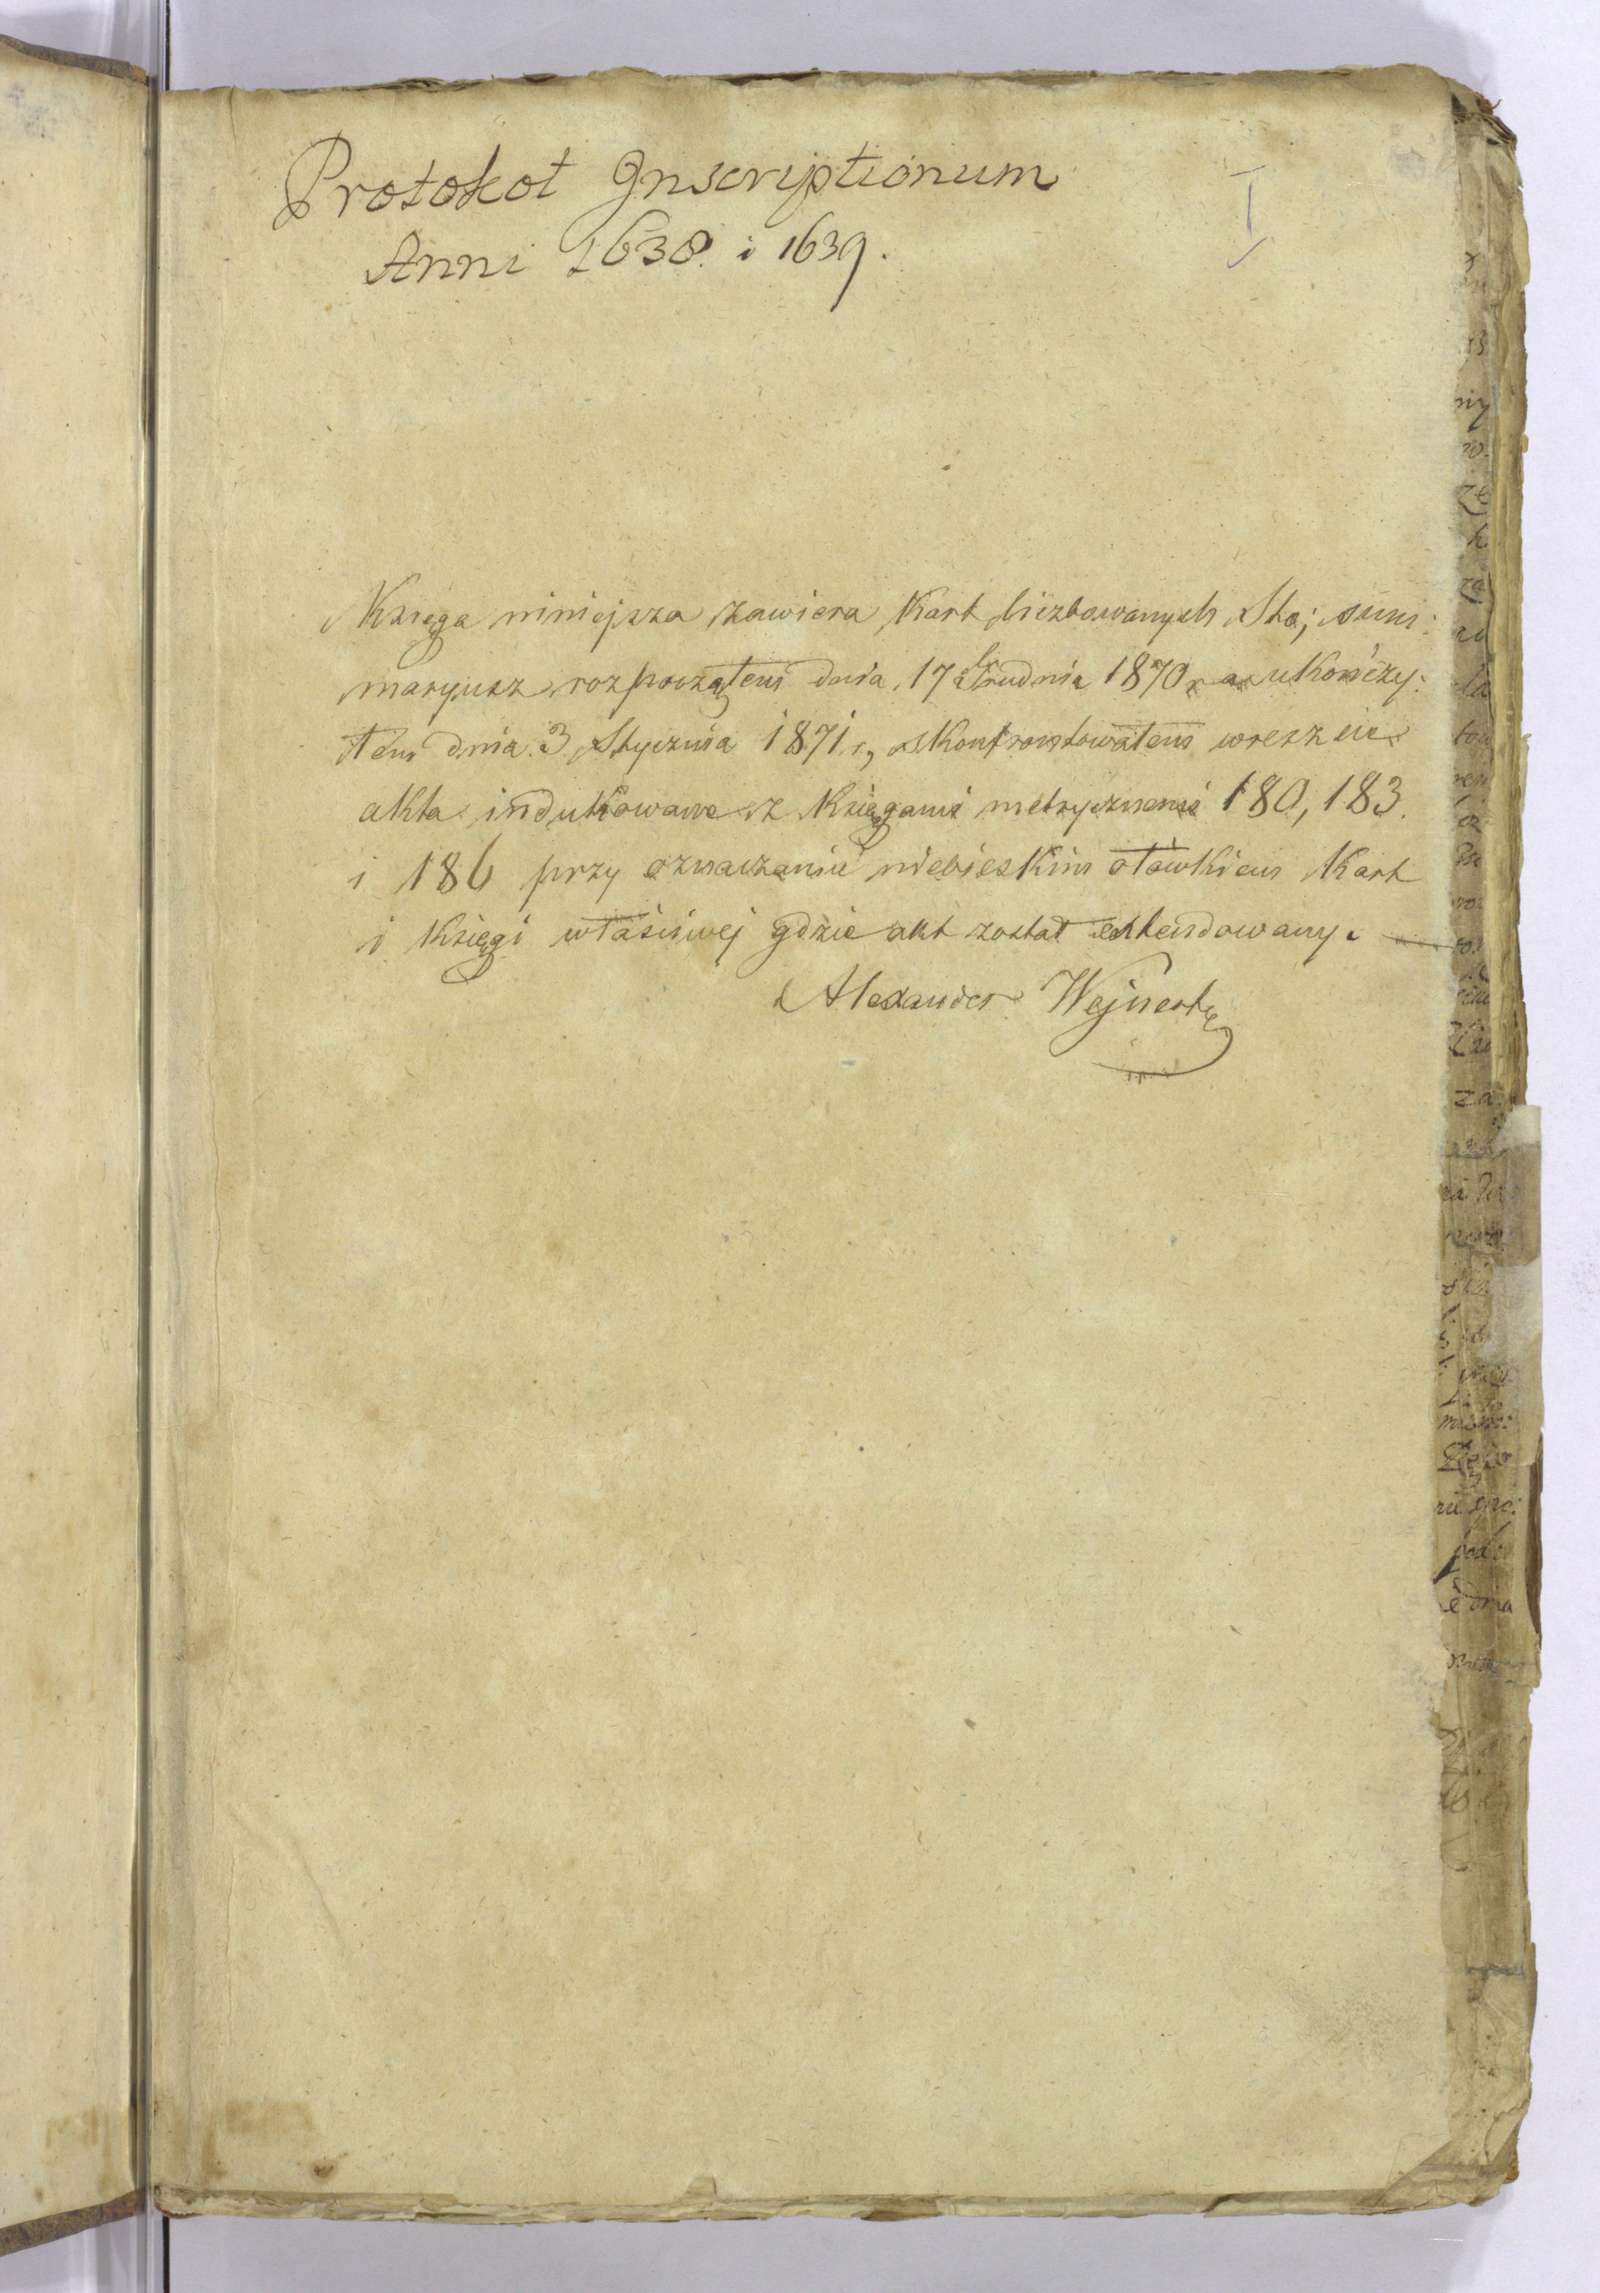 Protokoł Inscriptionum
Anni 1638. i 1639.
I
Księga niniejsza zawiera Kart liczbowanych Sto; sum:
maryusz rozpocząłem dnia 17 Grudnia 1870 r. a ukończy:
łem dnia 3 Stycznia 1871 r., skontrontowałem wreszcie
akta indukowane z Księgami metrycznemi 180, 183.
i 186 przy oznaczaniu niebieskim ołówkiem Kart
i Księgi właściwej gdzie akt został extendowany.
Alexander Wejnert